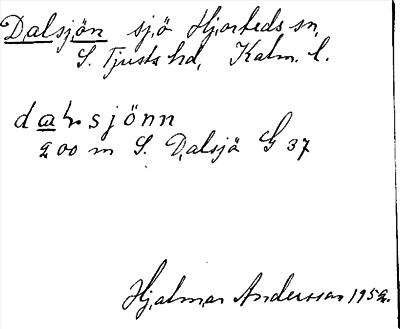 Dalsjön sjö Hjorteds sn,
S. Tjusts hd, Kalm. l.
dalsjönn
200 m S. Dalsjö G 37
Hjalmar Andersson 1952.